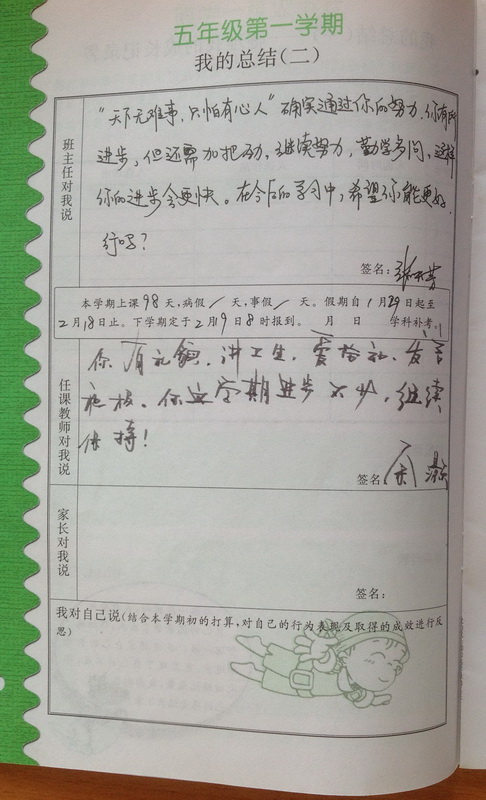 五年级第一学期
我的总结(二)
班主任对我说
"天下无难事，只怕有心人"确实通过你的努力，你有所
进步，但还需加把劲，继续努力，勤学多问，这样
你的进步会更快。在今后的学习中，希望你能更好，
行吗？
签名：
本学期上课98天，病假/天，事假/天。假期自1月29日起至
2月18日止。下学期定于2月19日8时报到。 月 日 学科补考。
任课教师对我说
你有礼貌，讲卫生，爱拾社，发言
积极，你这学期进步不少，继续
保持！
签名：
家长对我说
签名：
我对自己说(结合本学期初的打算，对自己的行为表现及取得的成效进行反
思)